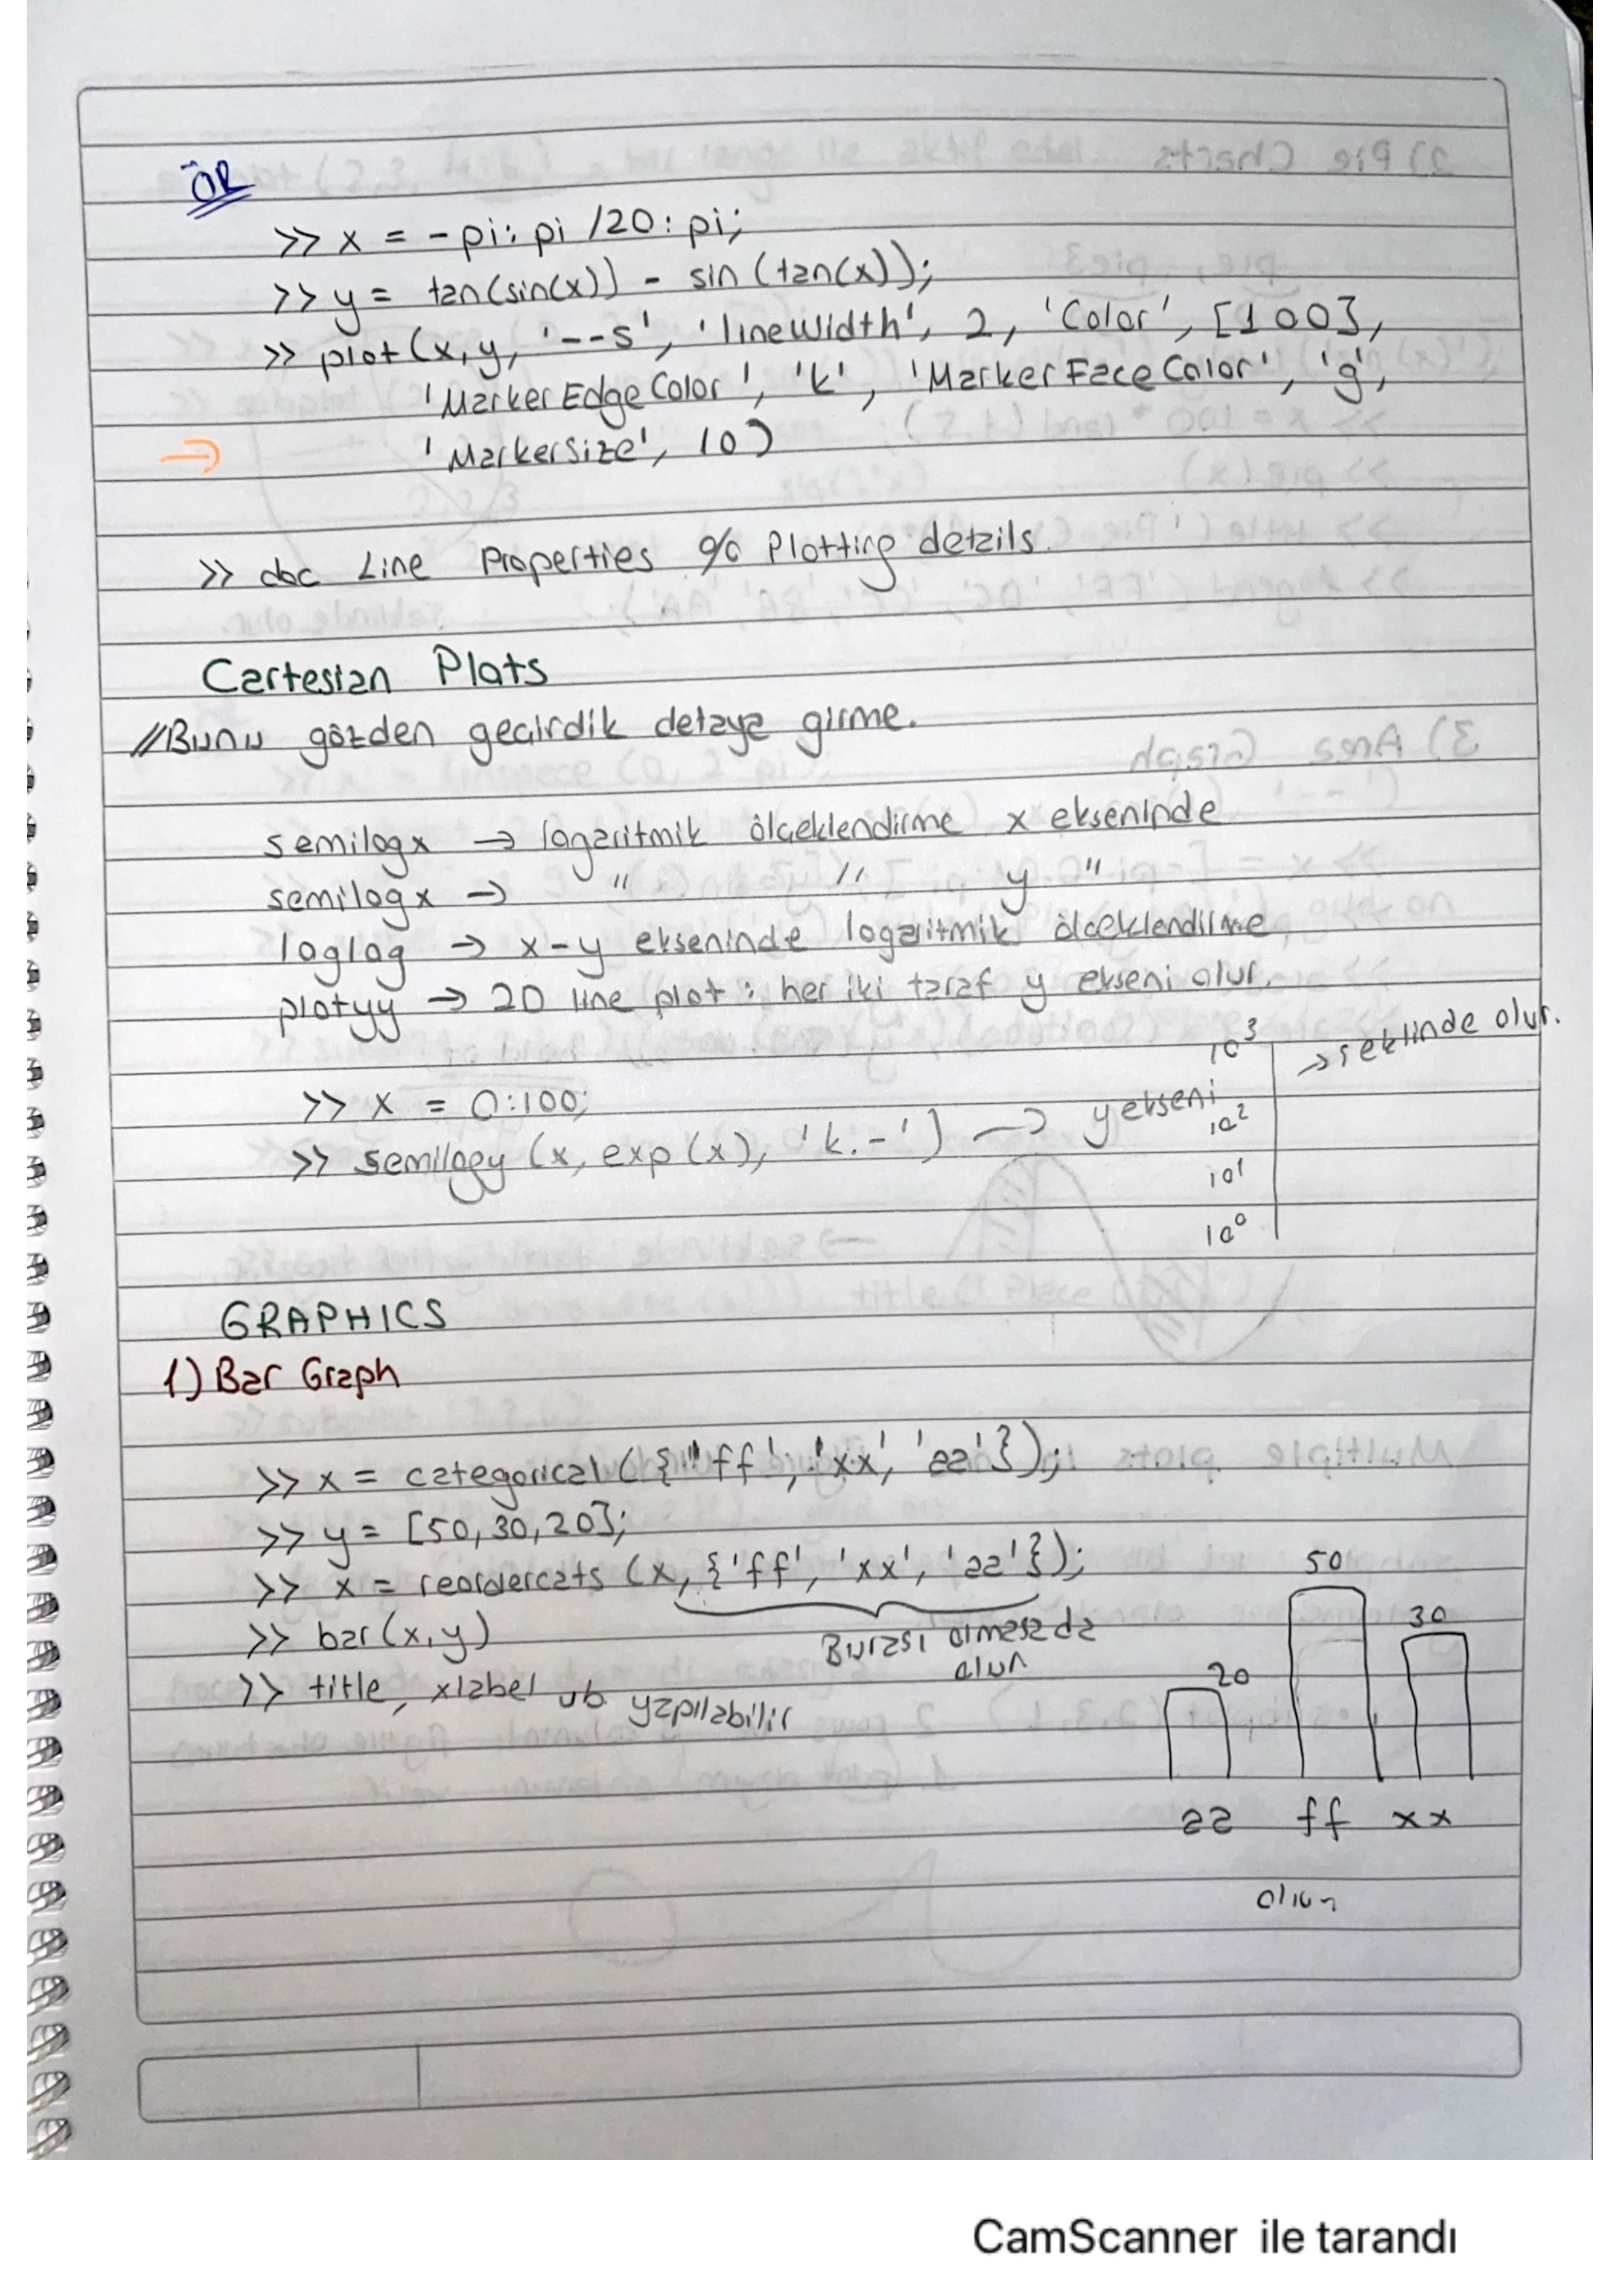 ÖR
>> x = -pi:pi/20:pi;
>> y = tan(sin(x)) - sin(tan(x));
>> plot(x,y,'--s','lineWidth',2,'Color',[1 0 0],
'MarkerEdgeColor','k','MarkerFaceColor','g',
⇒ 'MarkerSize',10)
>> doc Line Properties % Plotting details.
Cartesian Plots
//Bunu gözden geçirdik detaya girme.
semilogx → logaritmik ölçeklendirme x ekseninde
semilogx → " " y "
loglog → x-y ekseninde logaritmik ölçeklendirme
plotyy → 2D line plot: her iki taraf y ekseni olur.
>> x = 0:100;
>> semilogy(x, exp(x), 'k.-') → y ekseni
10³ → şeklinde olur.
10²
10¹
10⁰
GRAPHICS
1) Bar Graph
>> x = categorical({'ff','xx','aa'});
>> y = [50,30,20];
>> x = reordercats(x,{'ff','xx','aa'});
Burası olmasa da
olur
>> bar(x,y)
>> title, xlabel vb. yapılabilir
50
30
20
aa ff xx
CamScanner ile tarandı